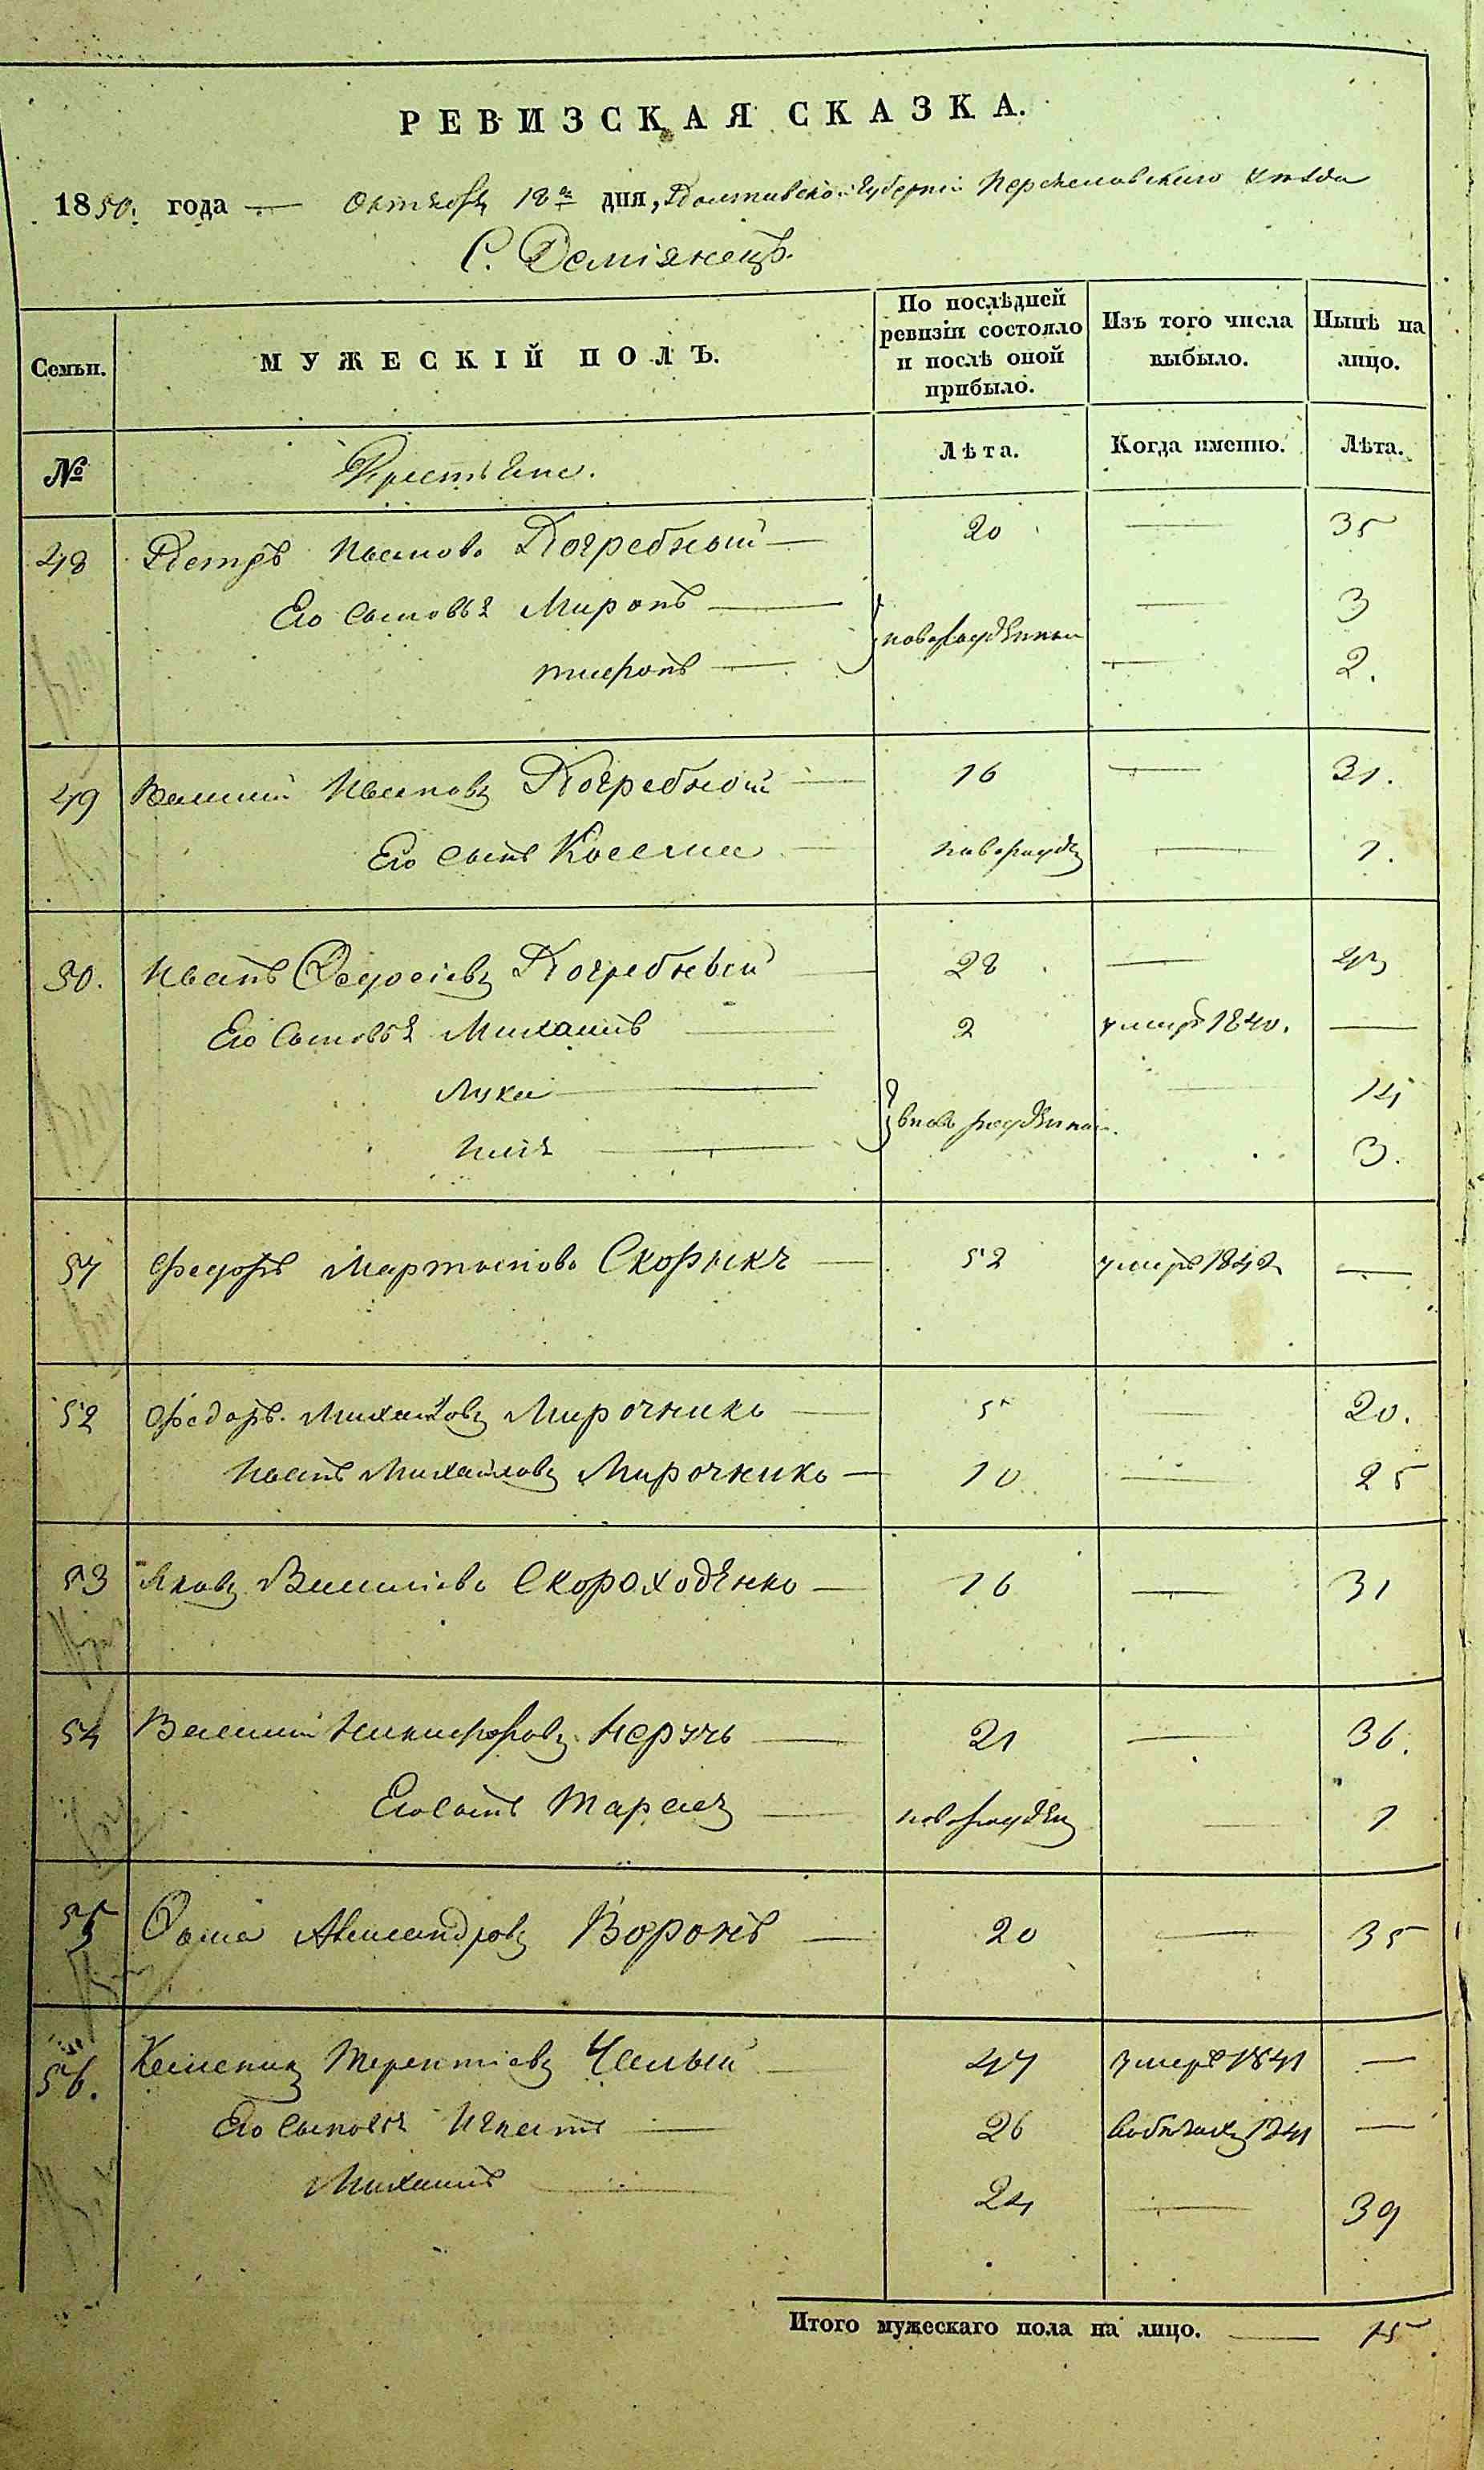 РЕВИЗСКАЯ СКАЗКА.
1850. года — Октября 18го дня, Полтавской Губерніи Переясловскаго уѣзда
С. Деміянецъ.
Семьи. МУЖЕСКІЙ ПОЛЪ. По послѣдней ревизіи состояло и послѣ оной прибыло. Изъ того числа выбыло. Нынѣ на лицо.
№ Крестьяне. Лѣта. Когда именно. Лѣта.
48 Петръ Ивановъ Погребный — 20 — 35
Его сыновья Миронъ — новорожденные — 3
— — 2.
49 Василий Ивановъ Погребной — 16 — 31.
Его сынъ Косма — новорожд — 1.
50. Иванъ Федосіевъ Погребный — 28 — 43
Его сыновья Михаилъ — 2 умеръ 1840. —
Лука — вновь рожденные — 14
Илія — 3.
51 Федоръ Мартыновъ Скорыкъ — 52 умеръ 1842 —
52 Федоръ Михайловъ Мирочникъ — 5 — 20.
Иванъ Михайловъ Мирочникъ — 10 — 25
53 Яковъ Василіевъ Скороходенко — 16 — 31
54 Василий Никифоровъ Неручь — 21 — 36.
Его сынъ Тарасъ — новорожден — 1
55 Фома Александровъ Воронъ — 20 — 35
56. Терентіевъ Чалый — 47 умеръ 1841 —
Его сыновья Игнатъ — 26 1841 —
Михаилъ — 24 — 39
Итого мужескаго пола на лицо. — 15